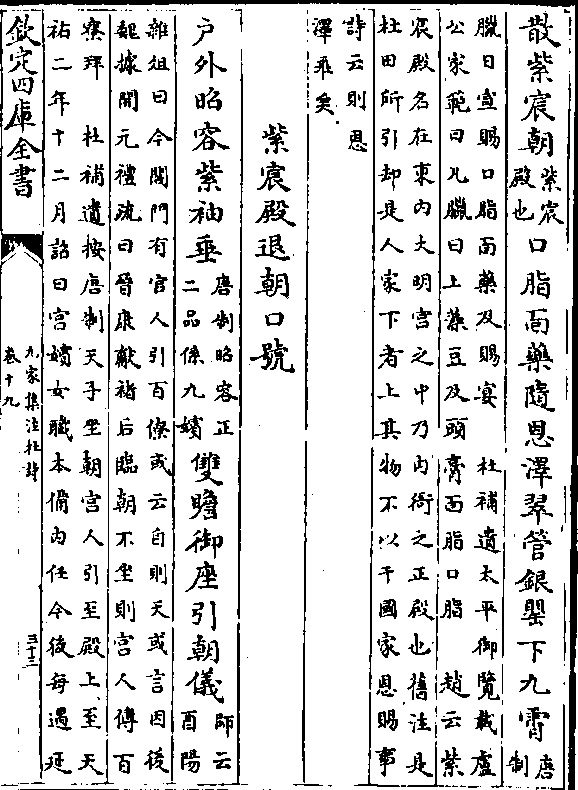 散紫宸朝紫宸殿也口脂面藥隨恩澤翠管銀罌下九霄唐制
臘日宣賜口脂面藥及賜宴　杜補遺太平御覽載盧
公家範曰凡臘日上藻豆及頭膏面脂口脂　趙云紫
宸殿名在東内大明宫之中乃内衙之正殿也舊注是
杜田所引却是人家下者上其物不以干國家恩賜事
詩云則恩
澤乖矣
紫宸殿退朝口號
户外昭容紫袖垂唐制昭容正二品係九嬪雙瞻御座引朝儀師云酉陽
雜俎曰今閤門有宫人引百僚或云自則天或言因後
魏據開元禮疏曰晉康獻褚后臨朝不坐則宫人傳百
寮拜　杜補遺按唐制天子坐朝宫人引至殿上至天
祐二年十二月詔曰宫嬪女職本備内任今後每遇延
欽定四庫全書
九家集注杜詩
卷十九
三十三